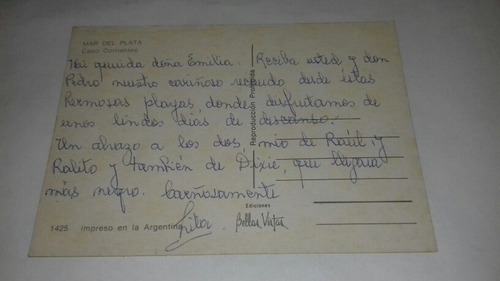 MAR DEL PLATA
Cabo Corrientes
Mi querida doña Emilia: Reciba usted y don
Pedro nuestro cariñoso recuerdo desde éstas
hermosas playas, donde disfrutamos de
unos lindos días de descanso.
Un abrazo a los dos mío de Raúl, y
Ralito y también de Dixie, que llegara
más negro. Cariñosamente
Lila
Reproducción Prohibida
1425 Impreso en la Argentina
Ediciones
Bellas Vistas